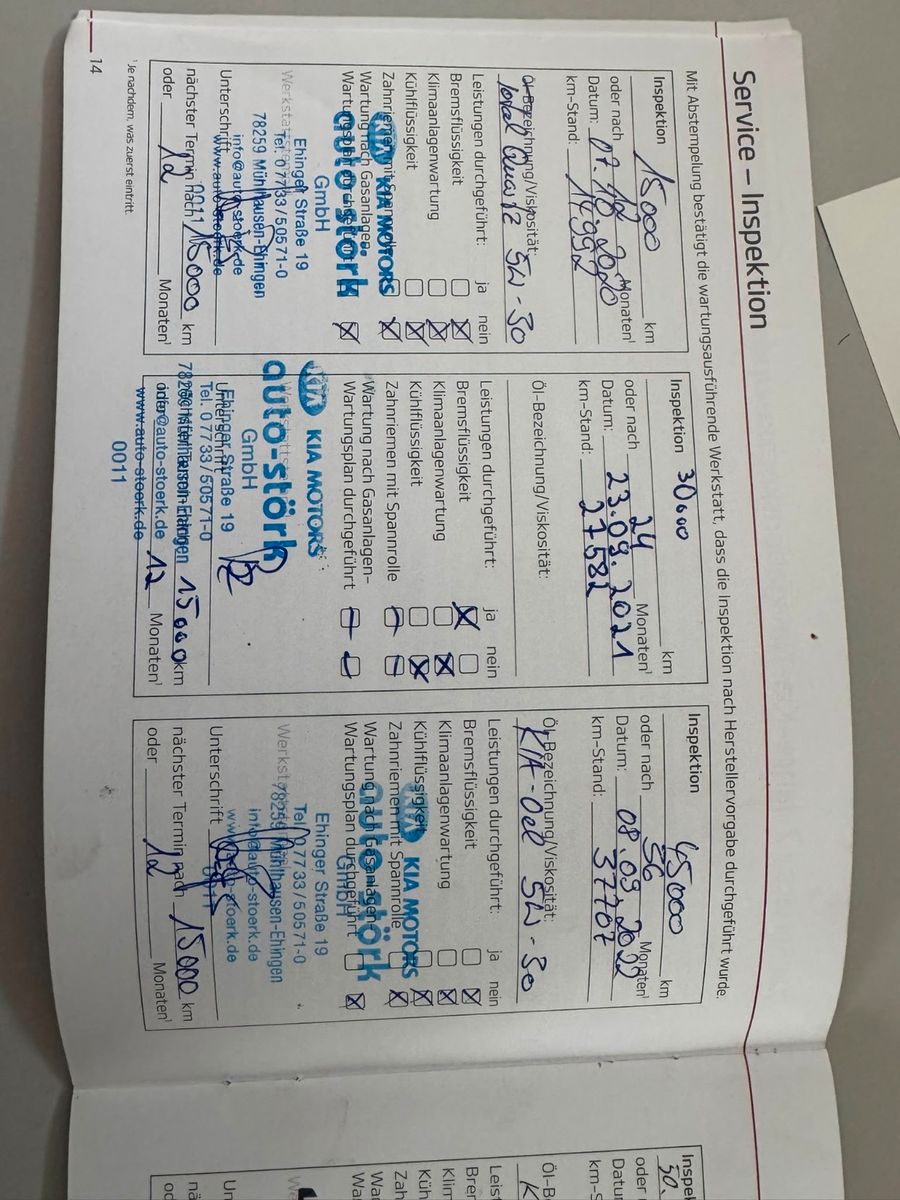 Service – Inspektion
Mit Abstempelung bestätigt die wartungsausführende Werkstatt, dass die Inspektion nach Herstellervorgabe durchgeführt wurde.
Inspektion 15000 km
oder nach 12 Monaten¹
Datum: 07.10.2020
km-Stand: 14992
Öl-Bezeichnung/Viskosität:
Total Quartz 5W-30
Leistungen durchgeführt: ja nein
Bremsflüssigkeit
Klimaanlagenwartung
Kühlflüssigkeit
Zahnriemen mit Spannrolle
Wartung nach Gasanlagen-
Wartungsplan durchgeführt
KIA MOTORS
auto-störk
GmbH
Ehinger Straße 19
Tel. 0 77 33 / 5 05 71-0
78259 Mühlhausen-Ehingen
info@auto-stoerk.de
www.auto-stoerk.de
0011
Unterschrift
nächster Termin nach 15000 km
oder 12 Monaten¹
Inspektion 30000 km
oder nach 24 Monaten¹
Datum: 23.09.2021
km-Stand: 27582
Öl-Bezeichnung/Viskosität:
Leistungen durchgeführt: ja nein
Bremsflüssigkeit
Klimaanlagenwartung
Kühlflüssigkeit
Zahnriemen mit Spannrolle
Wartung nach Gasanlagen-
Wartungsplan durchgeführt
KIA MOTORS
auto-störk
GmbH
Ehinger Straße 19
Unterschrift
Tel. 0 77 33 / 5 05 71-0
78259 Mühlhausen-Ehingen
nächster Termin nach 15000 km
info@auto-stoerk.de
oder 12 Monaten¹
www.auto-stoerk.de
0011
Inspektion 45000 km
oder nach 36 Monaten¹
Datum: 08.09.2022
km-Stand: 37707
Öl-Bezeichnung/Viskosität:
KIA-Oel 5W-30
Leistungen durchgeführt: ja nein
Bremsflüssigkeit
Klimaanlagenwartung
Kühlflüssigkeit
Zahnriemen mit Spannrolle
Wartung nach Gasanlagen-
Wartungsplan durchgeführt
KIA MOTORS
auto-störk
GmbH
Ehinger Straße 19
Tel. 0 77 33 / 5 05 71-0
78259 Mühlhausen-Ehingen
info@auto-stoerk.de
www.auto-stoerk.de
Unterschrift
nächster Termin nach 15000 km
oder 12 Monaten¹
¹ Je nachdem, was zuerst eintritt.
14